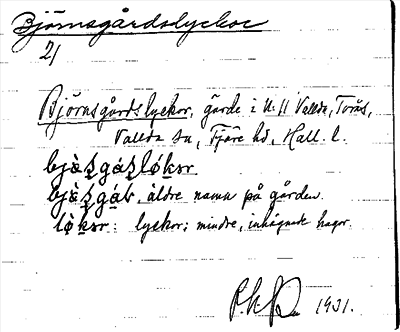 Björnsgårdslyckor
2/
Björnsgårdslyckor, gärde i U. 11 Vallda, Tvrås,
Vallda sn, Fjäre hd, Hall. l.
bjàṣgáṣlø̀ksr
bjàṣgáṣ, äldre namn på gården.
lø̀ksr: lyckor; mindre, inhägnade hagar.
1931.